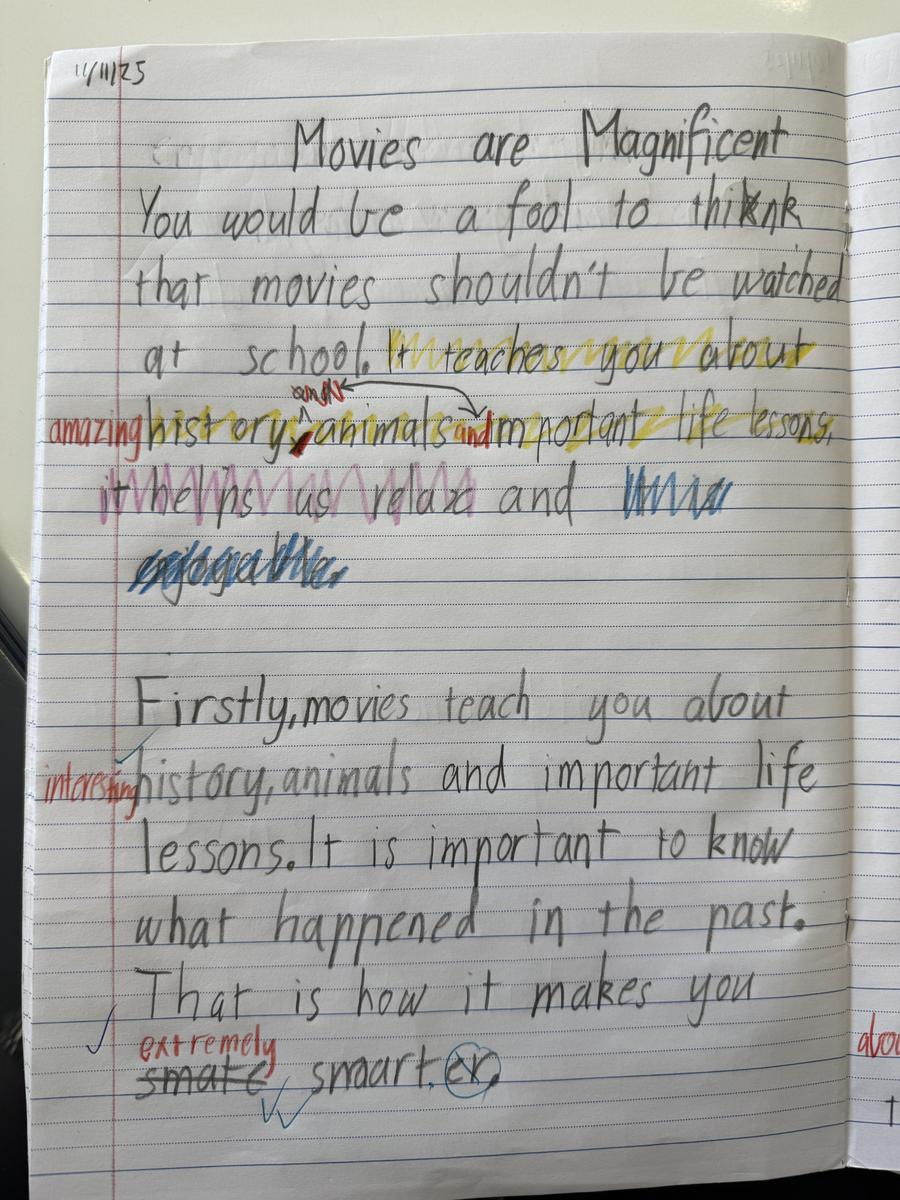 11/11/25
Movies are Magnificent
You would be a fool to think
that movies shouldn't be watched
at school. It teaches you about
amazing history, animals and important life lessons,
it helps us relax and
enjoyable.
Firstly, movies teach you about
interesting history, animals and important life
lessons. It is important to know
what happened in the past.
That is how it makes you
extremely
smate smart.er.
abou
t